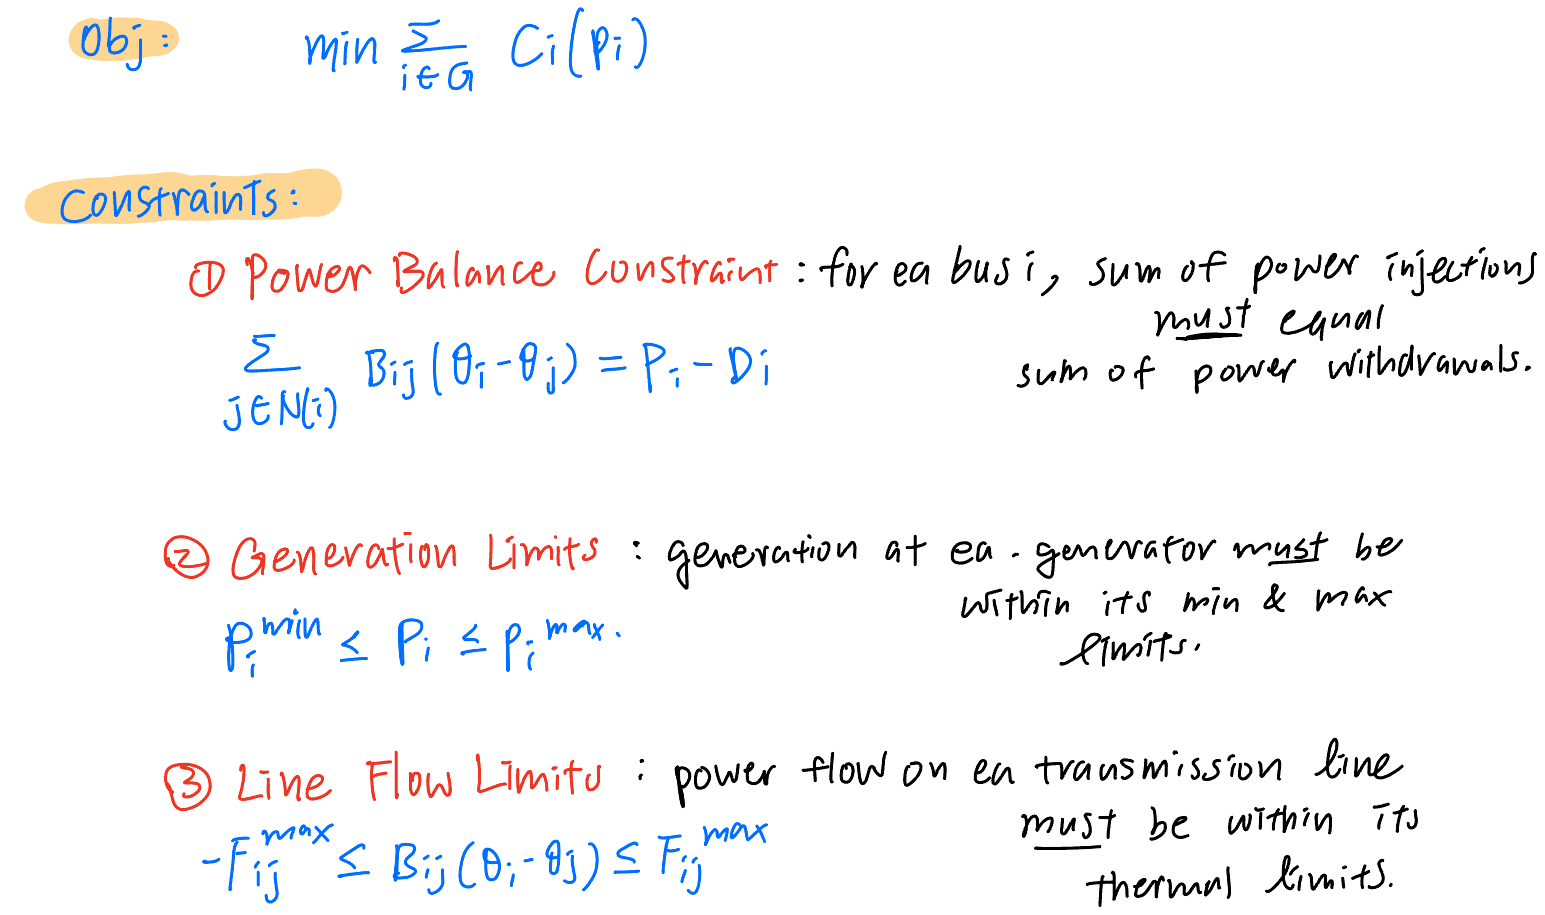 Obj: min Σ i∈G Ci(Pi)
Constraints:
① Power Balance Constraint : for ea bus i, sum of power injections
must equal
sum of power withdrawals.
Σ j∈N(i) Bij(θi-θj) = Pi - Di
② Generation Limits : generation at ea. generator must be
within its min & max
limits.
Pi^min ≤ Pi ≤ Pi^max.
③ Line Flow Limits : power flow on ea transmission line
must be within its
thermal limits.
-Fij^max ≤ Bij(θi-θj) ≤ Fij^max